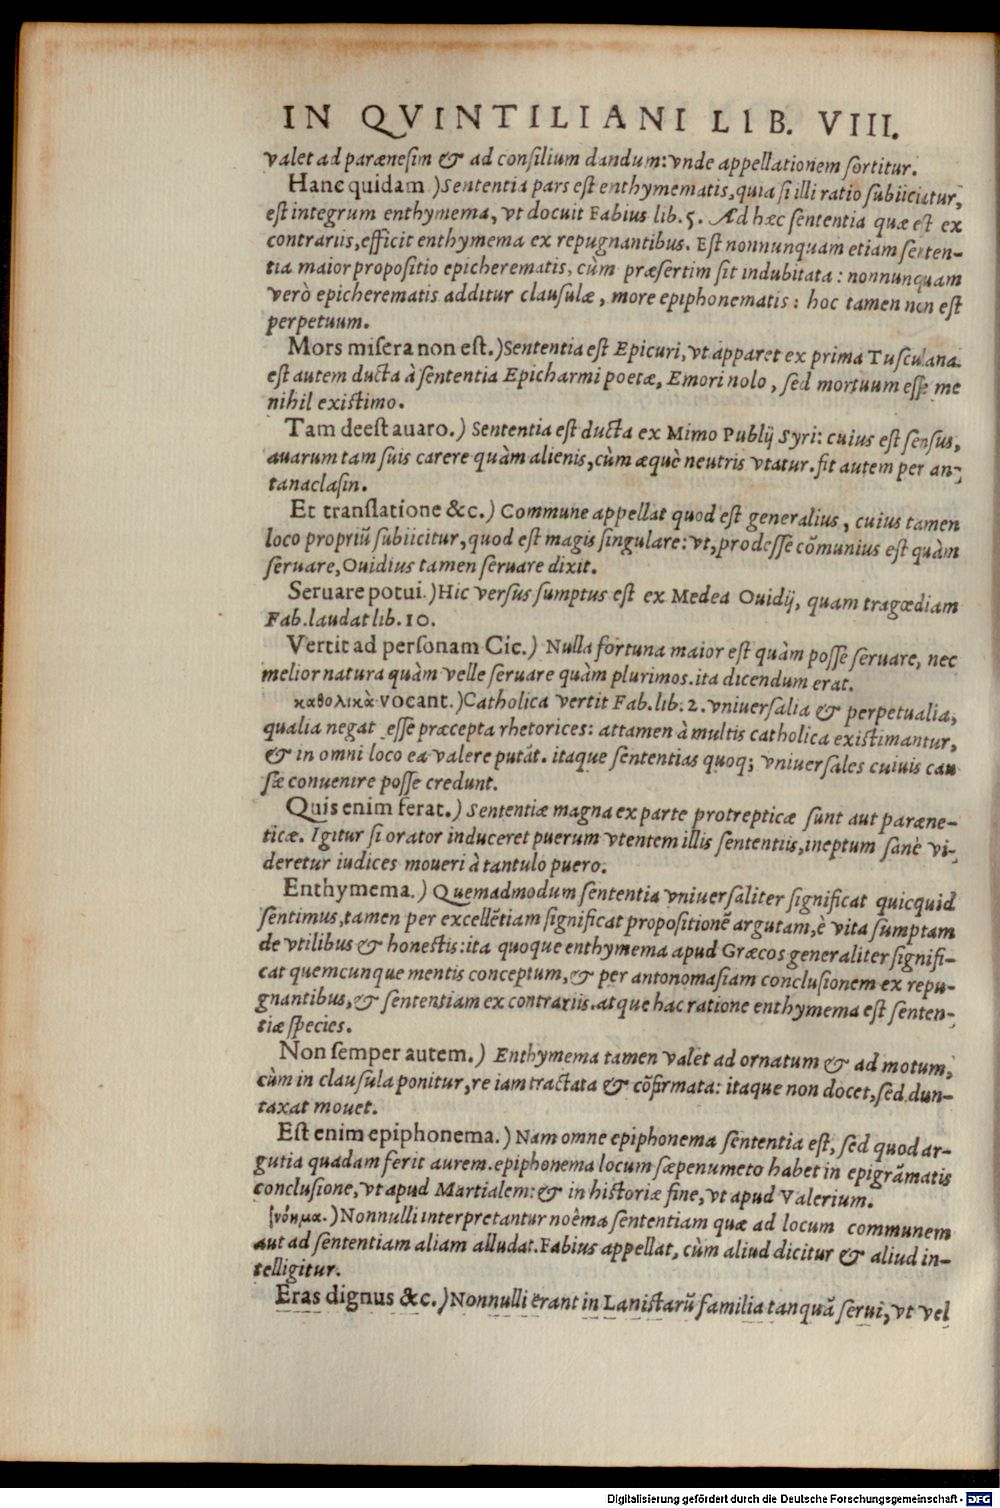 IN QVINTILIANI LIB. VIII.
valet ad parænesim & ad consilium dandum: vnde appellationem sortitur.
Hanc quidam ) Sententia pars est enthymematis, quia si illi ratio subiiciatur,
est integrum enthymema, vt docuit Fabius lib. 5. Ad hæc sententia quæ est ex
contrariis, efficit enthymema ex repugnantibus. Est nonnunquam etiam senten-
tia maior propositio epicherematis, cùm præsertim sit indubitata: nonnunquam
verò epicherematis additur clausulæ, more epiphonematis: hoc tamen non est
perpetuum.
Mors misera non est.) Sententia est Epicuri, vt apparet ex prima Tusculana.
est autem ducta à sententia Epicharmi poetæ, Emori nolo, sed mortuum esse me
nihil existimo.
Tam deest auaro.) Sententia est ducta ex Mimo Publij Syri: cuius est sensus,
auarum tam suis carere quàm alienis, cùm æquè neutris vtatur. fit autem per an-
tanaclasin.
Et translatione &c.) Commune appellat quod est generalius, cuius tamen
loco propriũ subiicitur, quod est magis singulare: vt, prodesse cõmunius est quàm
seruare, Ouidius tamen seruare dixit.
Seruare potui.) Hic versus sumptus est ex Medea Ouidij, quam tragœdiam
Fab. laudat lib. 10.
Vertit ad personam Cic.) Nulla fortuna maior est quàm posse seruare, nec
melior natura quàm velle seruare quàm plurimos. ita dicendum erat.
καθολικὰ vocant.) Catholica vertit Fab. lib. 2. vniuersalia & perpetualia,
qualia negat esse præcepta rhetorices: attamen à multis catholica existimantur,
& in omni loco ea valere putãt. itaque sententias quoq; vniuersales cuiuis cau
sæ conuenire posse credunt.
Quis enim ferat.) Sententiæ magna ex parte protrepticæ sunt aut paræne-
ticæ. Igitur si orator induceret puerum vtentem illis sententiis, ineptum sanè vi-
deretur iudices moueri à tantulo puero.
Enthymema.) Quemadmodum sententia vniuersaliter significat quicquid
sentimus, tamen per excellẽtiam significat propositionẽ argutam, è vita sumptam
de vtilibus & honestis: ita quoque enthymema apud Græcos generaliter signifi-
cat quemcunque mentis conceptum, & per antonomasiam conclusionem ex repu-
gnantibus, & sententiam ex contrariis. atque hac ratione enthymema est senten-
tiæ species.
Non semper autem.) Enthymema tamen valet ad ornatum & ad motum,
cùm in clausula ponitur, re iam tractata & cõfirmata: itaque non docet, sed dun-
taxat mouet.
Est enim epiphonema.) Nam omne epiphonema sententia est, sed quod ar-
gutia quadam ferit aurem. epiphonema locum sæpenumeto habet in epigrãmatis
conclusione, vt apud Martialem: & in historiæ fine, vt apud Valerium.
νόημα.) Nonnulli interpretantur noèma sententiam quæ ad locum communem
aut ad sententiam aliam alludat. Fabius appellat, cùm aliud dicitur & aliud in-
telligitur.
Eras dignus &c.) Nonnulli erant in Lanistarũ familia tanquã serui, vt vel
Digitalisierung gefördert durch die Deutsche Forschungsgemeinschaft - DFG